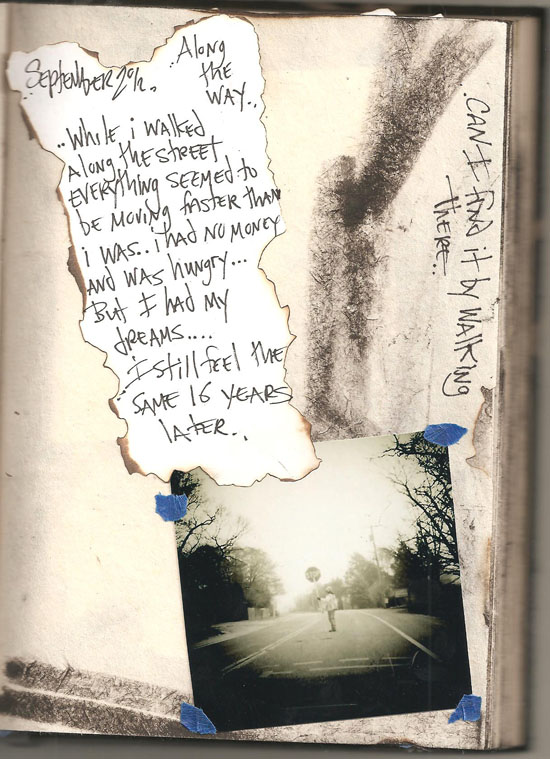 September 20th..
..Along
the
WAY..
..While i walked
Along the street
EVERYthing SEEMED to
be moving faster than
i was.. i had no money
And was hungry...
But I had my
dreams....
I still feel the
SAME 16 YEARS
later..
..CAN I find it by WALKING
there..